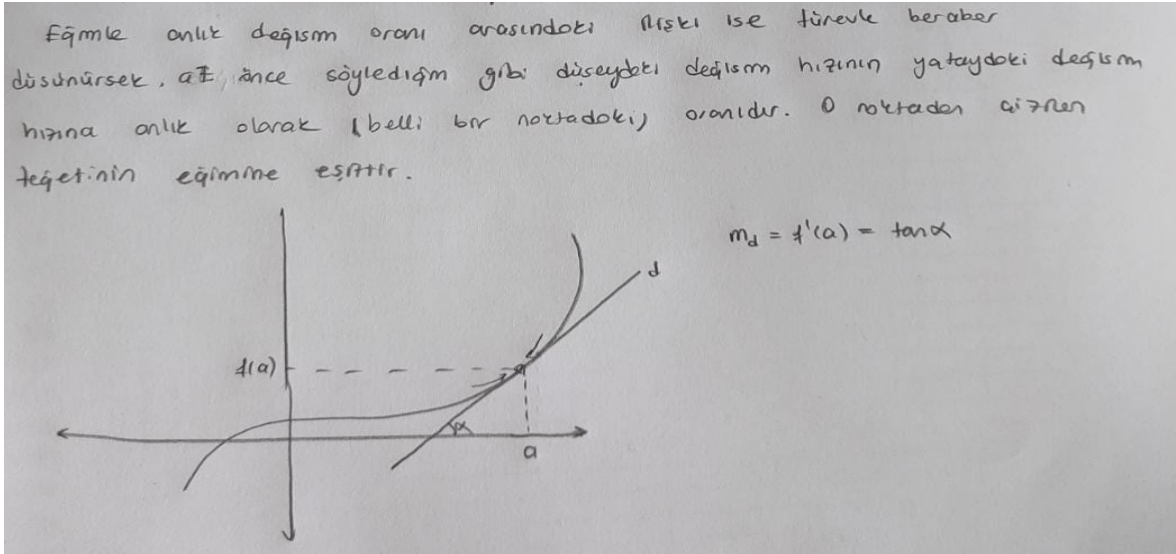 Eğimle anlık değişim oranı arasındaki ilişki ise türevle beraber
düşünürsek, az önce söylediğim gibi düşeydeki değişim hızının yataydaki değişim
hızına anlık olarak (belli bir noktadaki) oranıdır. O noktadan çizilen
teğetinin eğimine eşittir.
m_d = f'(a) = tanα
d
f(a)
α
a